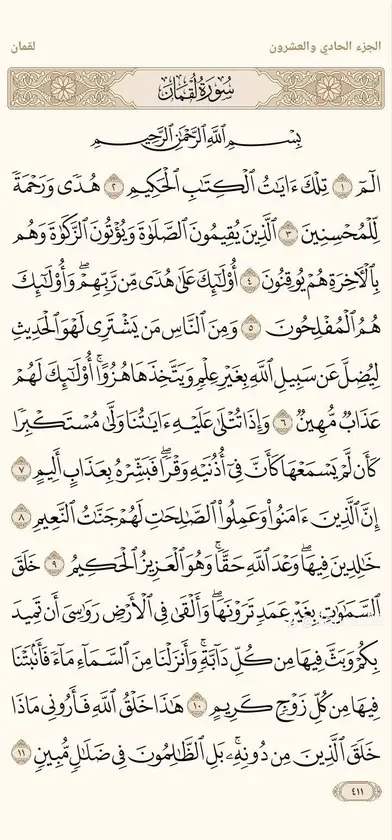 الجزء الحادي والعشرون لقمان
سُورَةُ لُقْمَان
بِسْمِ اللَّهِ الرَّحْمَٰنِ الرَّحِيمِ
الٓمٓ ١ تِلْكَ ءَايَٰتُ ٱلْكِتَٰبِ ٱلْحَكِيمِ ٢ هُدًى وَرَحْمَةً
لِّلْمُحْسِنِينَ ٣ ٱلَّذِينَ يُقِيمُونَ ٱلصَّلَوٰةَ وَيُؤْتُونَ ٱلزَّكَوٰةَ وَهُم
بِٱلْءَاخِرَةِ هُمْ يُوقِنُونَ ٤ أُو۟لَٰٓئِكَ عَلَىٰ هُدًى مِّن رَّبِّهِمْ ۖ وَأُو۟لَٰٓئِكَ
هُمُ ٱلْمُفْلِحُونَ ٥ وَمِنَ ٱلنَّاسِ مَن يَشْتَرِى لَهْوَ ٱلْحَدِيثِ
لِيُضِلَّ عَن سَبِيلِ ٱللَّهِ بِغَيْرِ عِلْمٍ وَيَتَّخِذَهَا هُزُوًا ۚ أُو۟لَٰٓئِكَ لَهُمْ
عَذَابٌ مُّهِينٌ ٦ وَإِذَا تُتْلَىٰ عَلَيْهِ ءَايَٰتُنَا وَلَّىٰ مُسْتَكْبِرًا
كَأَن لَّمْ يَسْمَعْهَا كَأَنَّ فِىٓ أُذُنَيْهِ وَقْرًا ۖ فَبَشِّرْهُ بِعَذَابٍ أَلِيمٍ ٧
إِنَّ ٱلَّذِينَ ءَامَنُوا۟ وَعَمِلُوا۟ ٱلصَّٰلِحَٰتِ لَهُمْ جَنَّٰتُ ٱلنَّعِيمِ ٨
خَٰلِدِينَ فِيهَا ۖ وَعْدَ ٱللَّهِ حَقًّا ۚ وَهُوَ ٱلْعَزِيزُ ٱلْحَكِيمُ ٩ خَلَقَ
ٱلسَّمَٰوَٰتِ بِغَيْرِ عَمَدٍ تَرَوْنَهَا ۖ وَأَلْقَىٰ فِى ٱلْأَرْضِ رَوَٰسِىَ أَن تَمِيدَ
بِكُمْ وَبَثَّ فِيهَا مِن كُلِّ دَآبَّةٍ ۚ وَأَنزَلْنَا مِنَ ٱلسَّمَآءِ مَآءً فَأَنۢبَتْنَا
فِيهَا مِن كُلِّ زَوْجٍ كَرِيمٍ ١٠ هَٰذَا خَلْقُ ٱللَّهِ فَأَرُونِى مَاذَا
خَلَقَ ٱلَّذِينَ مِن دُونِهِۦ ۚ بَلِ ٱلظَّٰلِمُونَ فِى ضَلَٰلٍ مُّبِينٍ ١١
٤١١